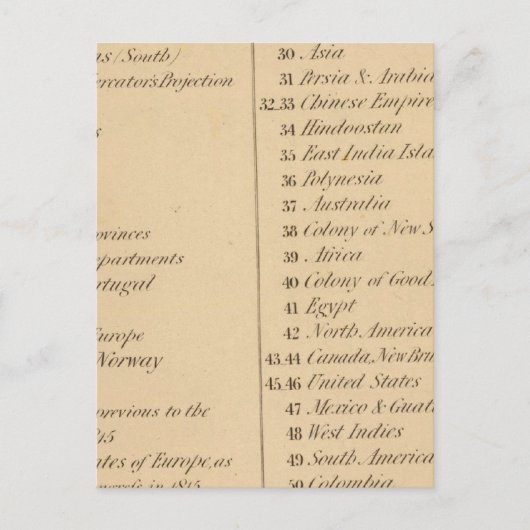 as (South)
ercator's Projection
s
ovinces
epartments
rtugal
Europe
Norway
previous to the
815
ates of Europe, as
in 1815
30 Asia
31 Persia & Arabia
32_33 Chinese Empire
34 Hindoostan
35 East India Isla
36 Polynesia
37 Australia
38 Colony of New S
39 Africa
40 Colony of Good
41 Egypt
42 North America
43_44 Canada, New Bru
45_46 United States
47 Mexico & Guat
48 West Indies
49 South America
50 Colombia